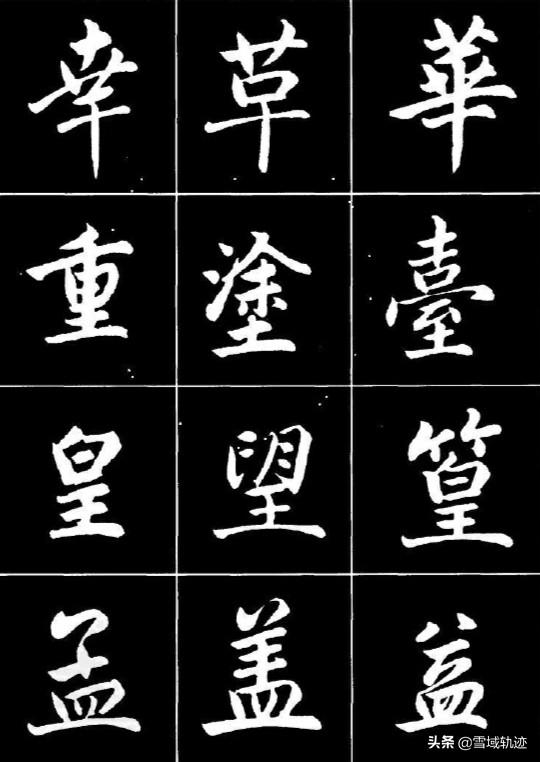 幸草華
重塗臺
皇望篁
孟盖益
头条 @雪域轨迹